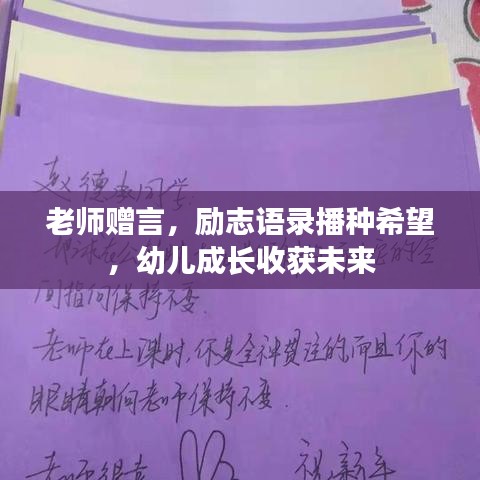 赵德 同学:
老师赠言，励志语录播种希望
，幼儿成长收获未来
地球在公 的空
间指向保持不变.
老师在上课时,你是全神贯注的,而且你的
眼睛朝向老师保持不变.
老师很 祝新年